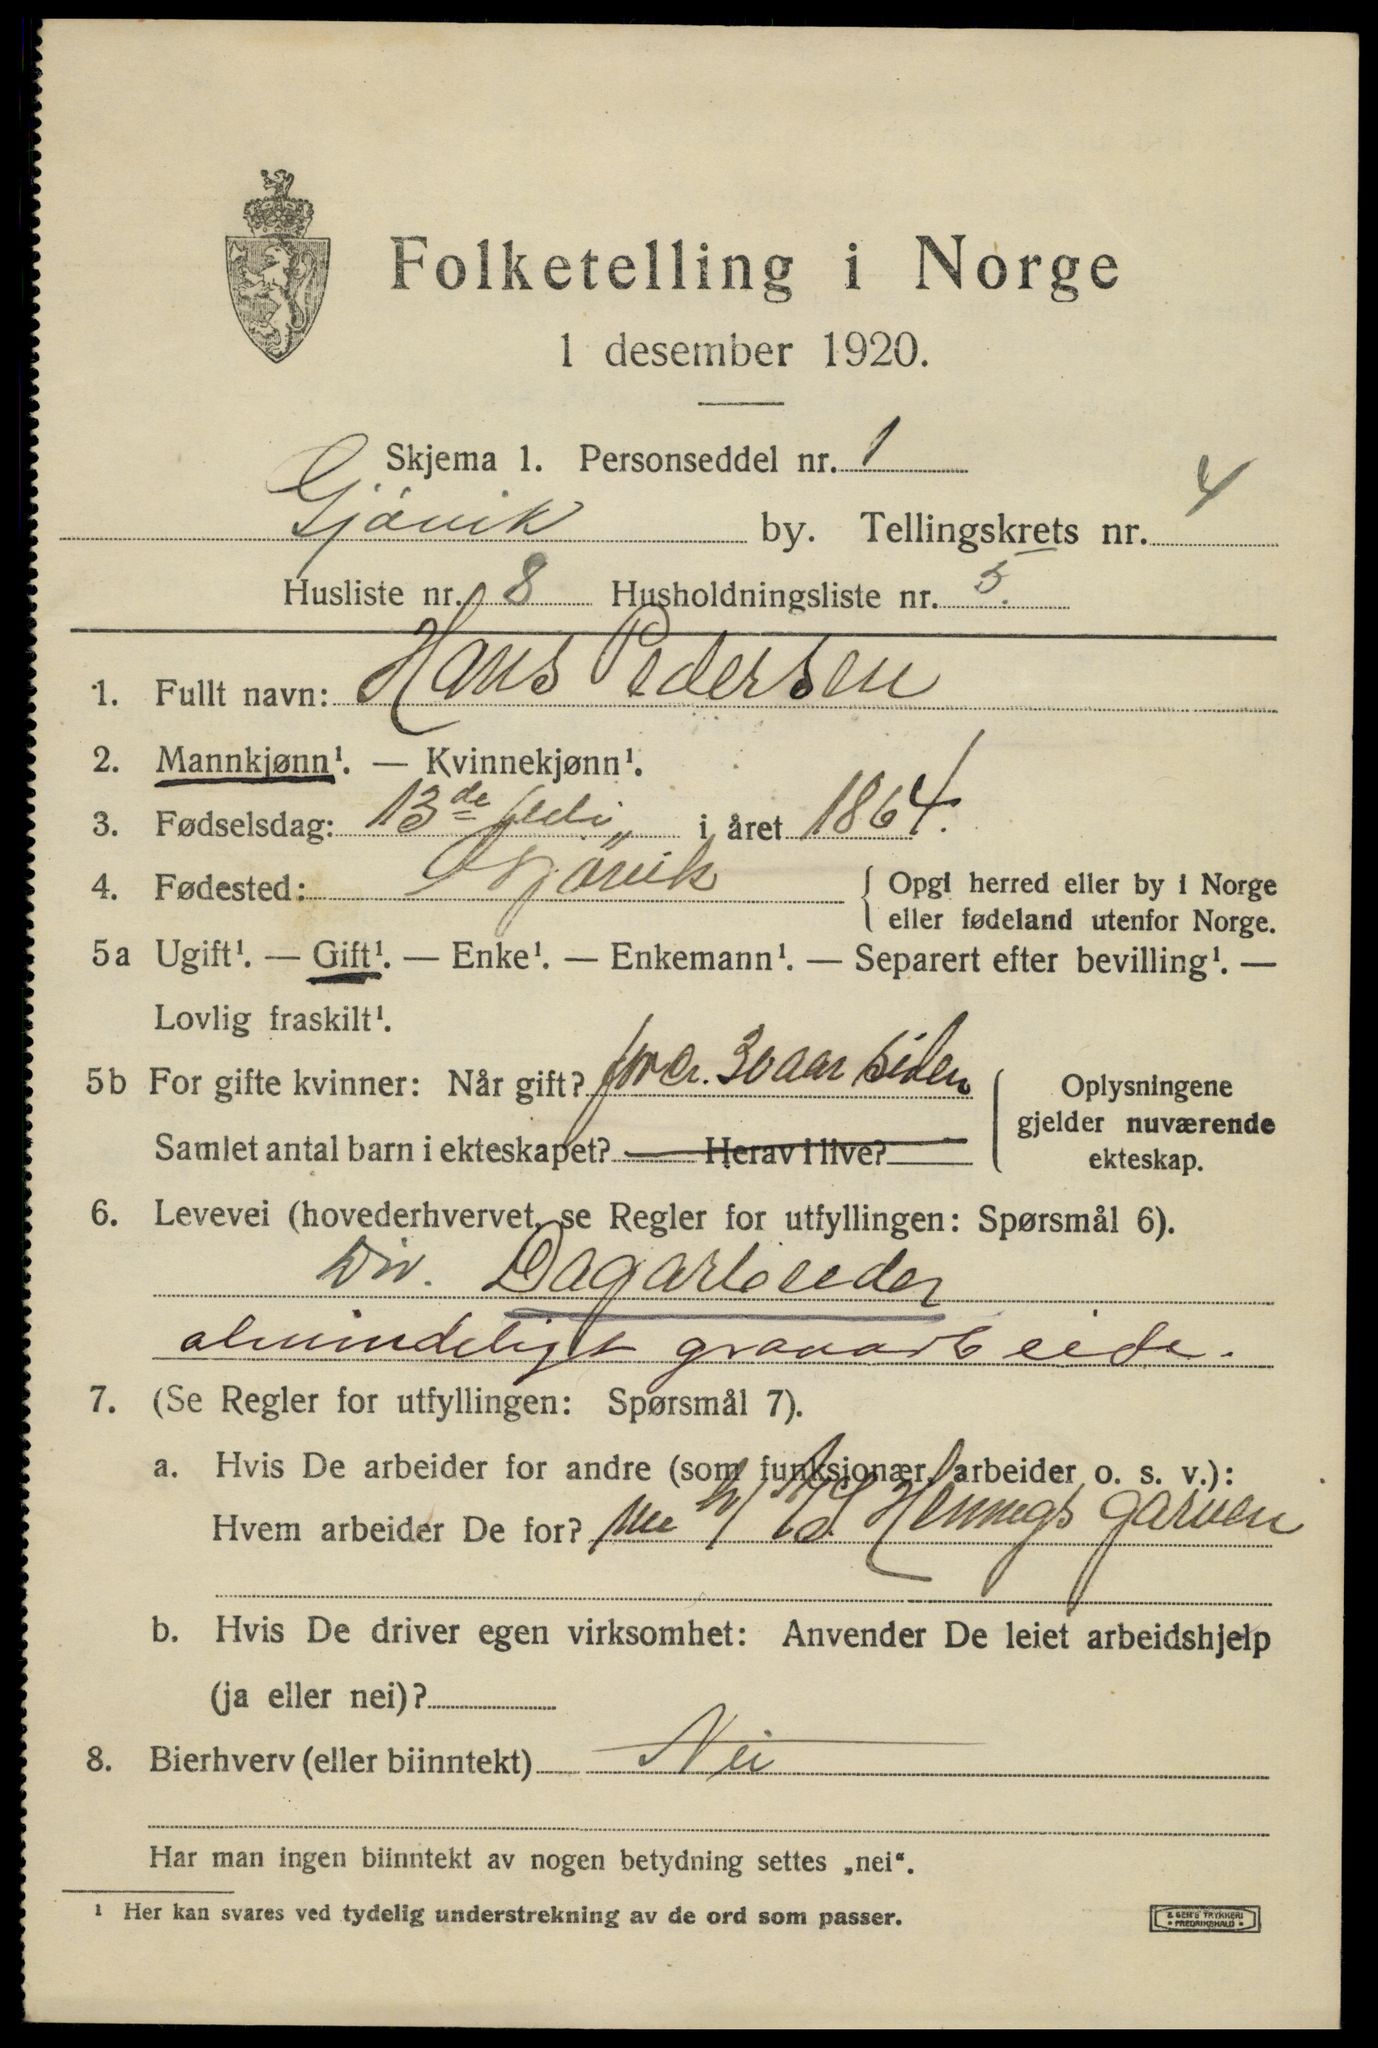 Folketelling i Norge
1 desember 1920.
Skjema 1. Personseddel nr. 1
Gjøvik by. Tellingskrets nr. 4
Husliste nr. 8 Husholdningsliste nr. 5.
1. Fullt navn: Hans Pedersen
2. Mannkjønn¹. — Kvinnekjønn¹.
3. Fødselsdag: 13de i året 1864.
4. Fødested: Gjøvik { Opgi herred eller by i Norge
eller fødeland utenfor Norge.
5a Ugift¹. — Gift¹. — Enke¹. — Enkemann¹. — Separert efter bevilling¹. —
Lovlig fraskilt¹.
5b For gifte kvinner: Når gift? for cr. 30 aar siden { Oplysningene
gjelder nuværende
ekteskap.
Samlet antal barn i ekteskapet? — Herav i live?
6. Levevei (hovederhvervet, se Regler for utfyllingen: Spørsmål 6).
Div. Dagarbeider
almindeligt gravarbeide.
7. (Se Regler for utfyllingen: Spørsmål 7).
a. Hvis De arbeider for andre (som funksjonær, arbeider o. s. v.):
Hvem arbeider De for? A/S Hennigs garveri
b. Hvis De driver egen virksomhet: Anvender De leiet arbeidshjelp
(ja eller nei)?
8. Bierhverv (eller biinntekt) Nei
Har man ingen biinntekt av nogen betydning settes „nei“.
¹ Her kan svares ved tydelig understrekning av de ord som passer.
E. SEM'S TRYKKERI
• FREDRIKSHALD •